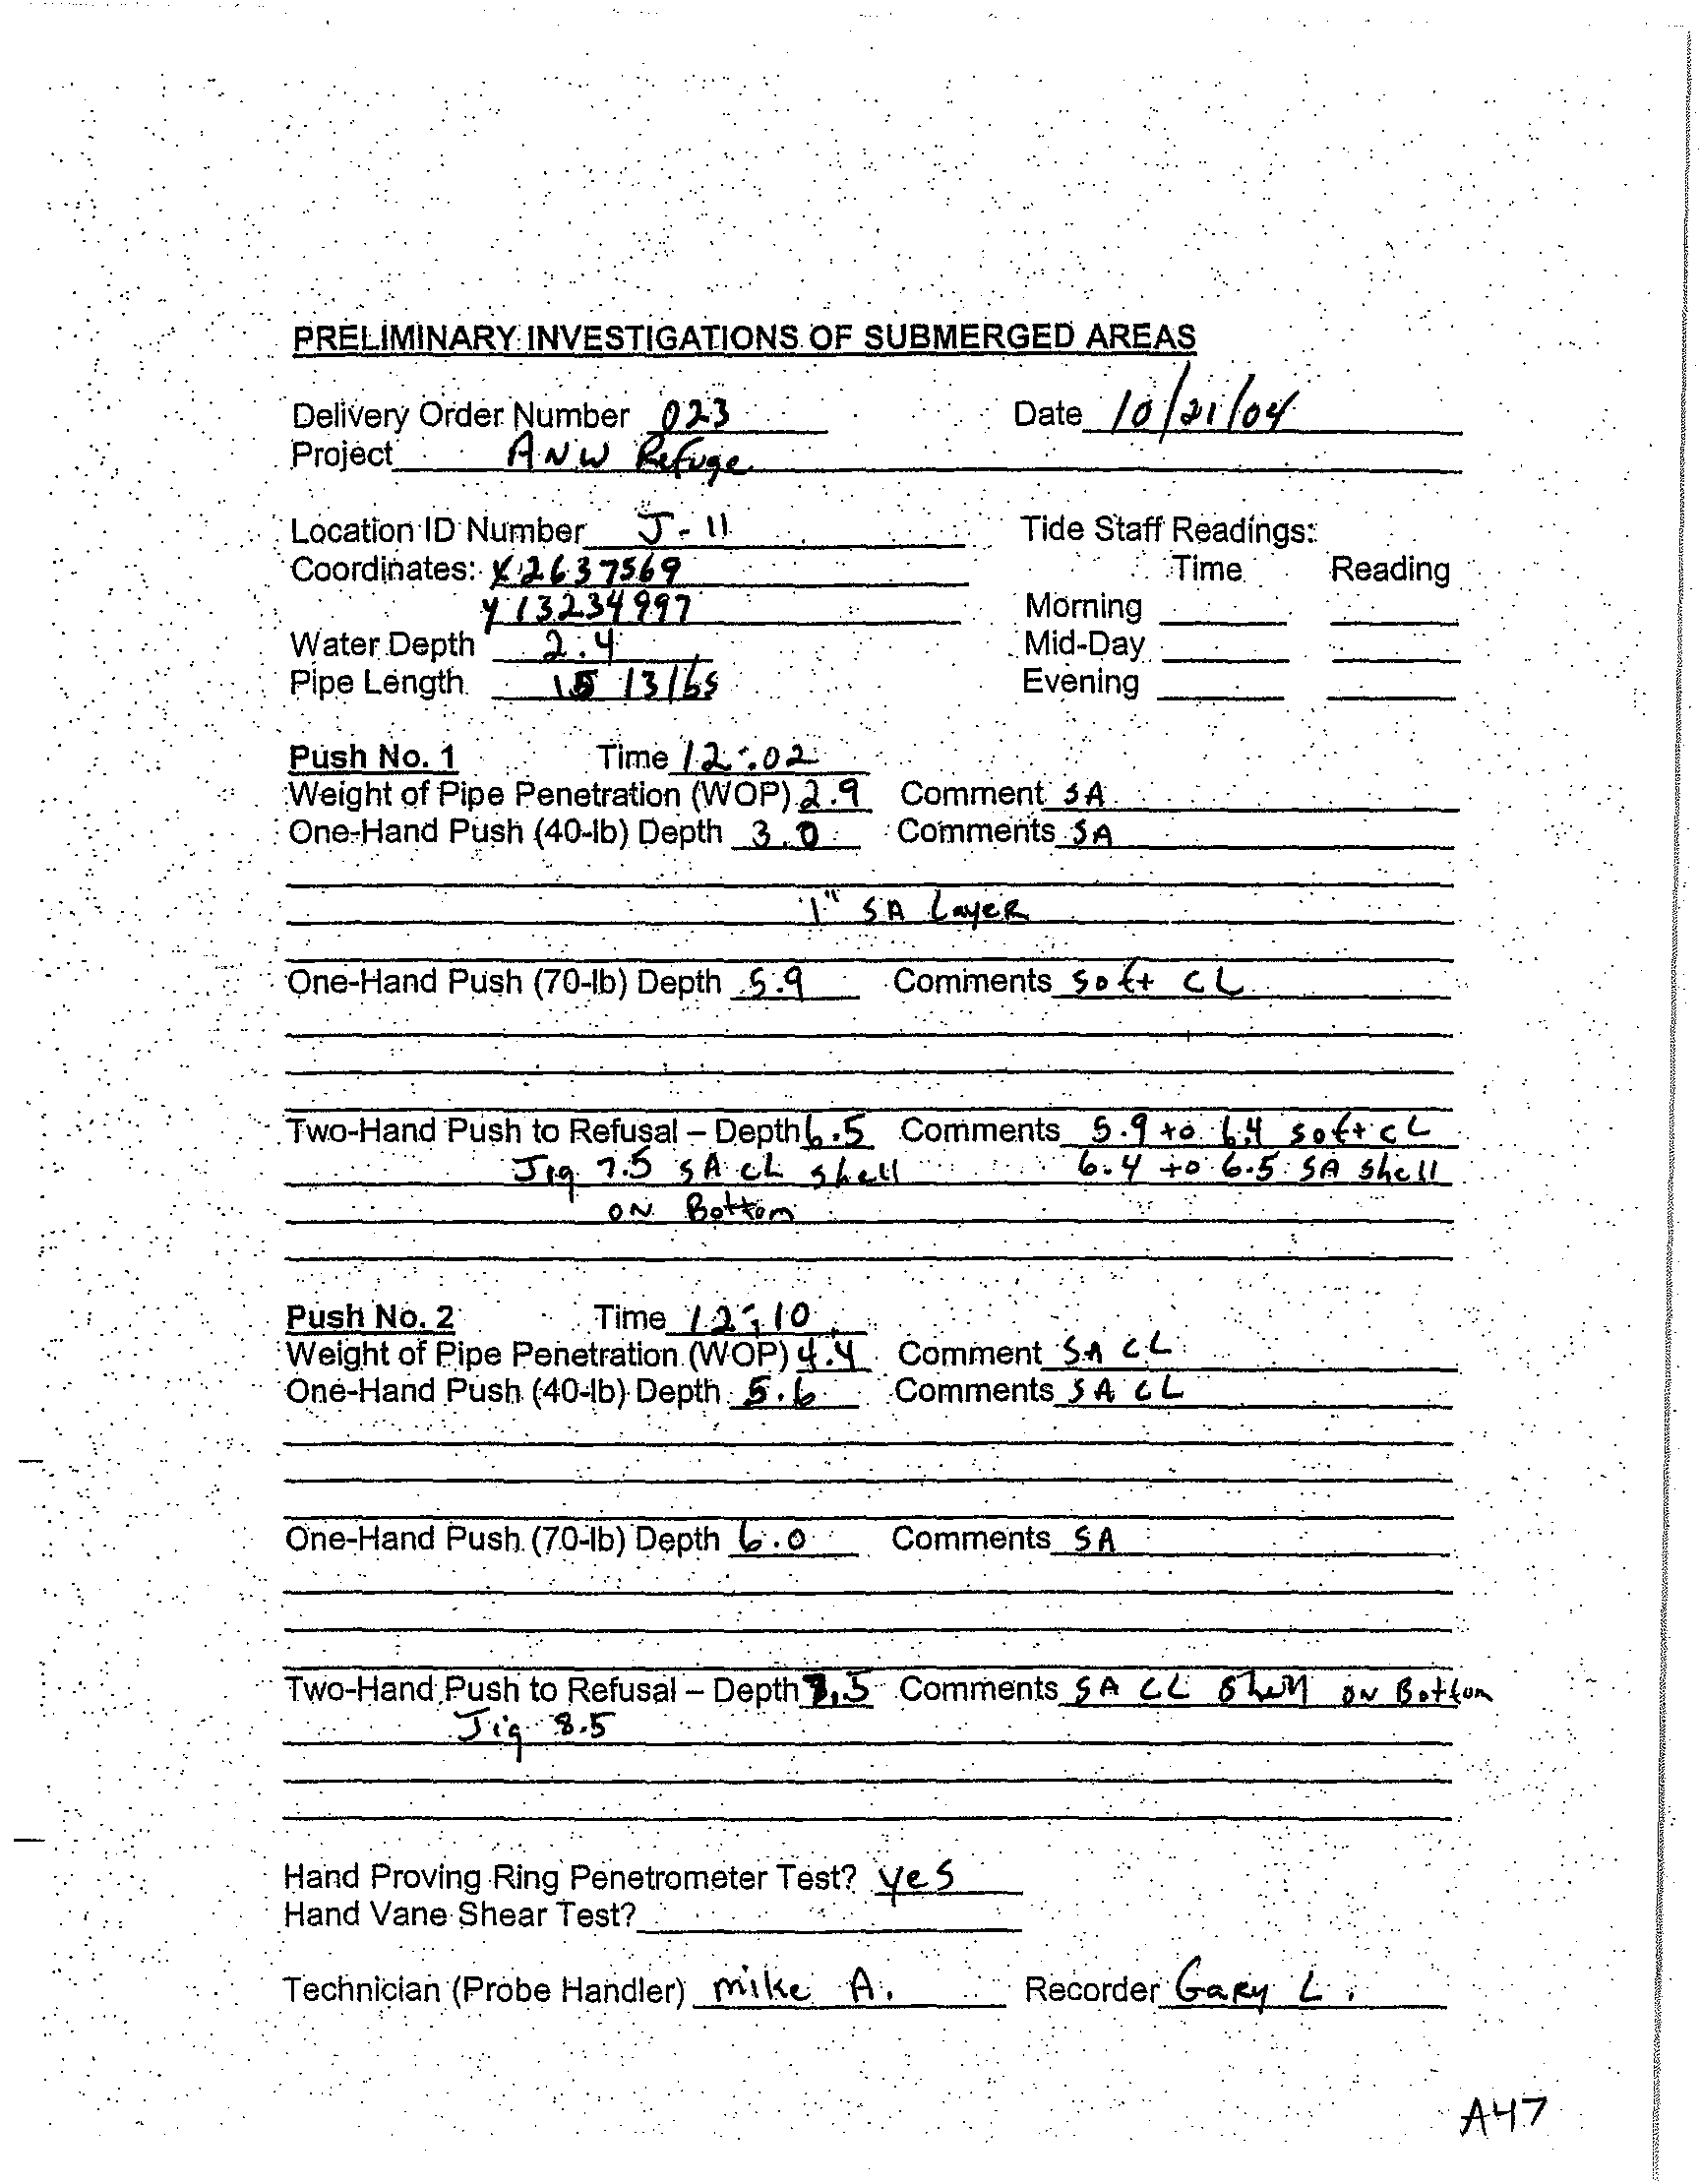 PRELIMINARY INVESTIGATIONS OF SUBMERGED AREAS
Delivery Order Number 023 Date 10/21/04
Project ANW Refuge
Location ID Number J-11 Tide Staff Readings:
Coordinates: X 2637569 Time Reading
Y 13234997 Morning
Water Depth 2.4 Mid-Day
Pipe Length 15 13 lbs Evening
Push No. 1 Time 12:02
Weight of Pipe Penetration (WOP) 2.9 Comment SA
One-Hand Push (40-lb) Depth 3.0 Comments SA
1" SA Layer
One-Hand Push (70-lb) Depth 5.9 Comments soft CL
Two-Hand Push to Refusal – Depth 6.5 Comments 5.9 to 6.4 soft CL
Jig 7.5 SA CL shell 6.4 to 6.5 SA shell
ON Bottom
Push No. 2 Time 12:10
Weight of Pipe Penetration (WOP) 4.4 Comment SA CL
One-Hand Push (40-lb) Depth 5.6 Comments SA CL
One-Hand Push (70-lb) Depth 6.0 Comments SA
Two-Hand Push to Refusal – Depth Comments SA CL Shell ON Bottom
Jig 8.5
Hand Proving Ring Penetrometer Test? yes
Hand Vane Shear Test?
Technician (Probe Handler) mike A. Recorder Gary L.
A47